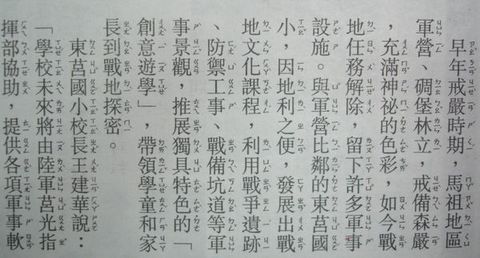 早年戒嚴時期，馬祖地區
軍營、碉堡林立，戒備森嚴
，充滿神祕的色彩，如今戰
地任務解除，留下許多軍事
設施。與軍營比鄰的東莒國
小，因地利之便，發展出戰
地文化課程，利用戰爭遺跡
、防禦工事、戰備坑道等軍
事景觀，推展獨具特色的「
創意遊學」，帶領學童和家
長到戰地探密。
東莒國小校長王建華說：
「學校未來將由陸軍莒光指
揮部協助，提供各項軍事軟